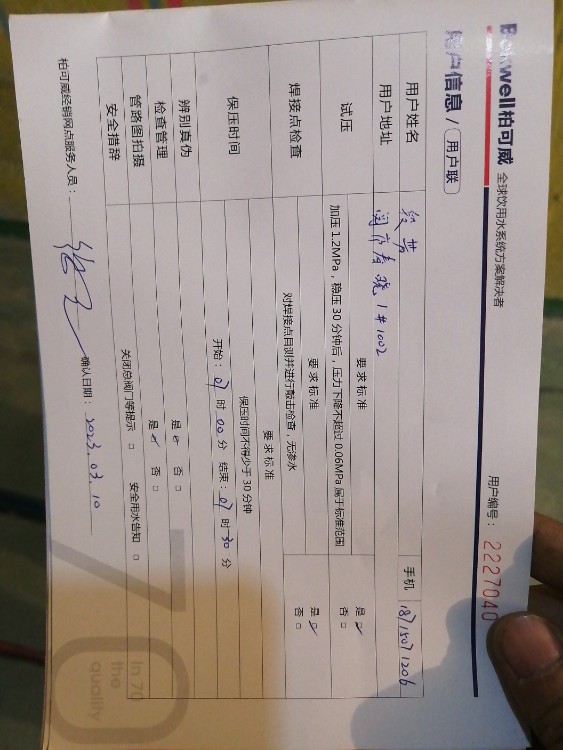 Bekwell柏可威 全球饮用水系统方案解决者
用户编号： 2227040
账户信息 / 用户联
用户姓名 手机 18715071206
用户地址 1#1002
试压 要求标准 是 否
加压 1.2MPa，稳压 30 分钟后，压力下降不超过 0.06MPa 属于标准范围
焊接点检查 要求标准 是 否
对焊接点目测并进行敲击检查，无渗水
保压时间 要求标准
保压时间不得少于 30 分钟
开始： 07 时 00 分 结束： 07 时 30 分
辨别真伪 是 否
检查管理 是 否
管路图拍摄
安全措辞 关闭总阀门等提示 安全用水告知
柏可威经销网点服务人员： 确认日期： 2023.03.10
70
In 70
the
quality